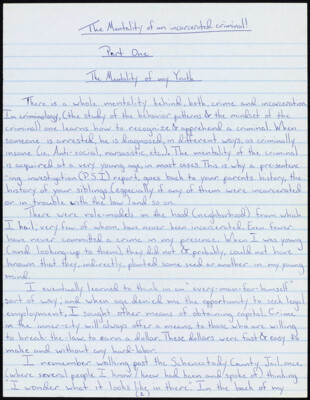 The Mentality of an incarcerated criminal!
Part One
The Mentality of my Youth
There is a whole mentality behind, both, crime and incarceration.
In criminology, (the study of the behavior patterns & the mindset of the
criminal) one learns how to recognize & apprehend a criminal. When
someone is arrested, he is diagnosed, in different ways, as criminally
insane (i.e. Anti-social, narcissistic, etc.). The mentality of the criminal
is acquired at a very young age, in most cases. This is why a presentenc-
ing investigation (P.S.I.) report, goes back to your parents history, the
history of your siblings (especially if any of them were incarcerated
or in trouble with the law) and so on.
There were role-models in the hood (neighborhood) from which
I hail, very few of whom have never been incarcerated. Even fewer
have never committed a crime in my presence. When I was young
(and looking-up to them) they did not & probably, could not have
known that they, indirectly, planted some seed or another in my young
mind.
I eventually learned to think in an "every-man-for-himself"
sort of way, and when age denied me the opportunity to seek legal
employment, I sought other means of obtaining capital. Crime
in the inner-city will always offer a means to those who are willing
to break-the-law to earn a dollar. These dollars were fast & easy to
make and without any hard-labor.
I remember walking past the Schenectady County Jail once,
(where several people I knew had been and spoke of) thinking
"I wonder what it looks like in there." In the back of my